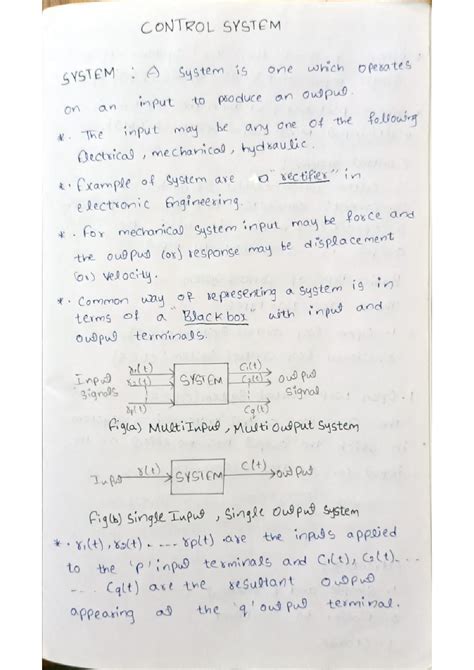 CONTROL SYSTEM
SYSTEM : A System is one which operates
on an input to produce an output.
*. The input may be any one of the following
Electrical, mechanical, hydraulic.
*. Example of System are a "rectifier" in
electronic Engineering.
*. For mechanical System input, may be force and
the output (or) response may be displacement
(or) velocity.
*. Common way of representing a system is in
terms of a "Black box" with input and
output terminals.
Input signals r1(t) r2(t) rp(t) SYSTEM C1(t) C2(t) Cq(t) output signal
Fig(a) Multi Input, Multi output System
Input r(t) SYSTEM C(t) output
Fig(b) Single Input, Single Output System
*. r1(t), r2(t) .... rp(t) are the inputs applied
to the 'p' input terminals and C1(t), C2(t)...
... Cq(t) are the resultant output
appearing at the 'q' output terminal.